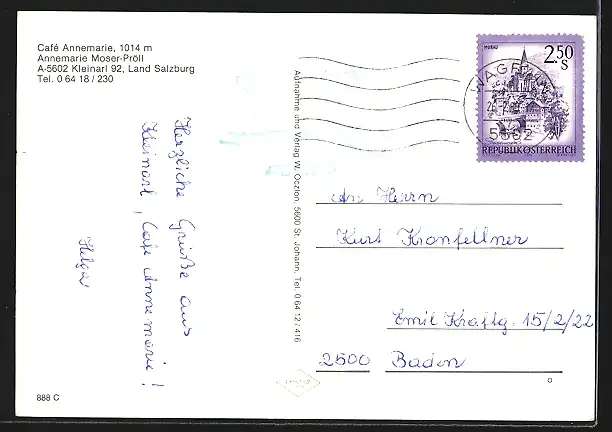 Café Annemarie, 1014 m
Annemarie Moser-Pröll
A-5602 Kleinarl 92, Land Salzburg
Tel. 0 64 18 / 230
Herzliche Grüße aus
Kleinarl, Café Annemarie!
Helga
888 C
Aufnahme und Verlag W. Oczlon, 5600 St. Johann, Tel. 0 64 12 / 416
MURAU
2.50
S
REPUBLIK ÖSTERREICH
5602
An Herrn
Kurt Kronfellner
Emil Kraftg. 15/2/22
2500 Baden